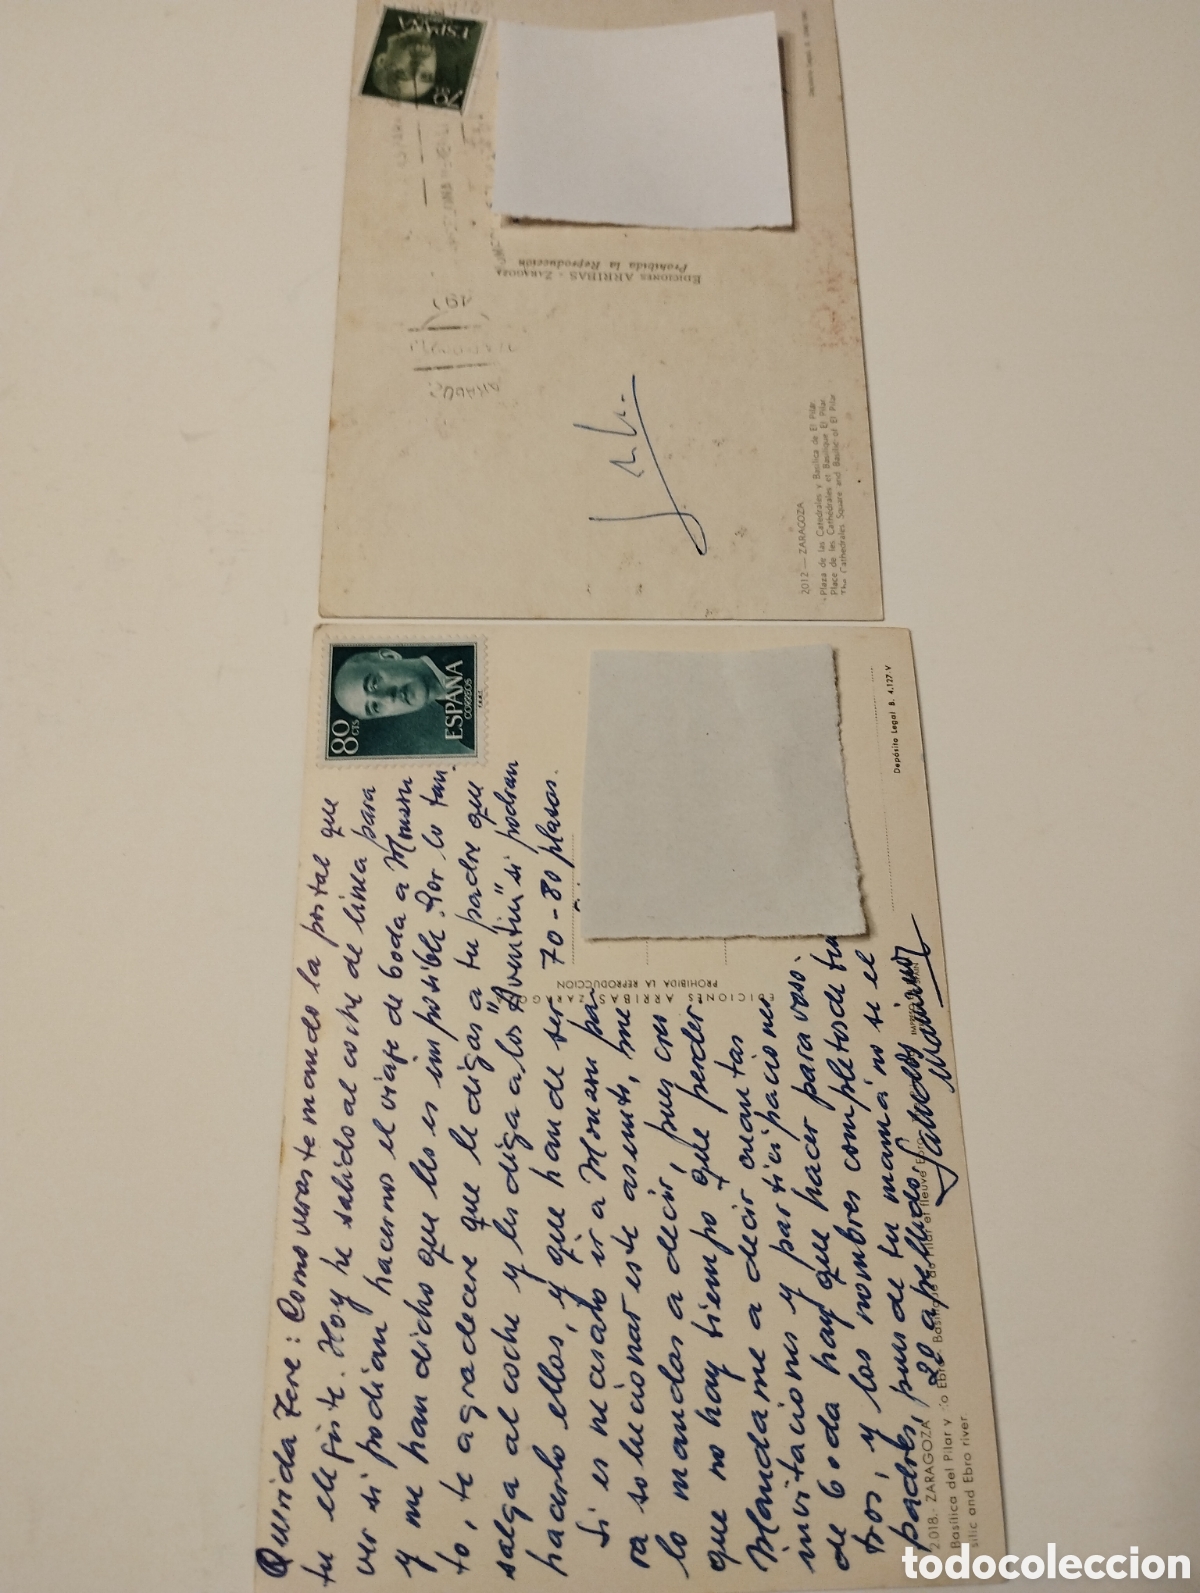 ESPAÑA
80
EDICIONES ARRIBAS - ZARAGOZA
Prohibida la Reproducción
2012 — ZARAGOZA
Plaza de las Catedrales y Basílica de El Pilar.
Place de les Cathédrales et Basilique El Pilar.
The Cathedrales Square and Basilic of El Pilar
80
CTS
ESPAÑA
CORREOS
F.N.M.T.
Querida Tere: Como veras te mando la postal que
tu elegiste. Hoy he salido al coche de linea para
ver si podian hacernos el viaje de boda a
y me han dicho que les es imposible. Por lo tan
to, te agradecere que le digas a tu padre que
salga al coche y les diga a los "Aventin" si podran
hacerlo ellos, y que han de ser 70-80 plasas.
Si es necesario ir a pa-
ra solucionar este asunto, me
lo mandas a decir, pues creo
que no hay tiempo que perder
Mandame a decir cuantas
invitaciones y participaciones
de boda hay que hacer para voso-
tros, y los nombres completos de tus
padres, pues de tu mamá no se el
2º apellido. Saludos
EDICIONES ARRIBAS ZARAGOZA
PROHIBIDA LA REPRODUCCION
Depósito Legal B. 4.127-V
2018.- ZARAGOZA
Basílica del Pilar y río Ebro. Basilique du Pilar et fleuve Ebro
silic and Ebro river
todocoleccion